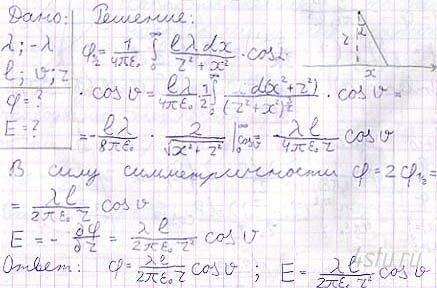 Дано: Решение:
λ; -λ φ½ = 1/(4πε₀) ∫₀^∞ lλdx/(r²+x²) · cosα
l; υ; r · cosυ = lλ/(4πε₀) 1/2 ∫₀^∞ d(x²+r²)/(r²+x²)^(3/2) · cosυ =
φ = ?
E = ? = - lλ/(8πε₀) · 2/√(x²+r²) |₀^∞ cosυ = λl/(4πε₀r) cosυ
В силу симметричности φ = 2φ½ =
= λl/(2πε₀r) cosυ
E = - ∂φ/∂r = λl/(2πε₀r²) cosυ
Ответ: φ = λl/(2πε₀r) cosυ ; E = λl/(2πε₀r²) cosυ
α
r
x
4stu.ru